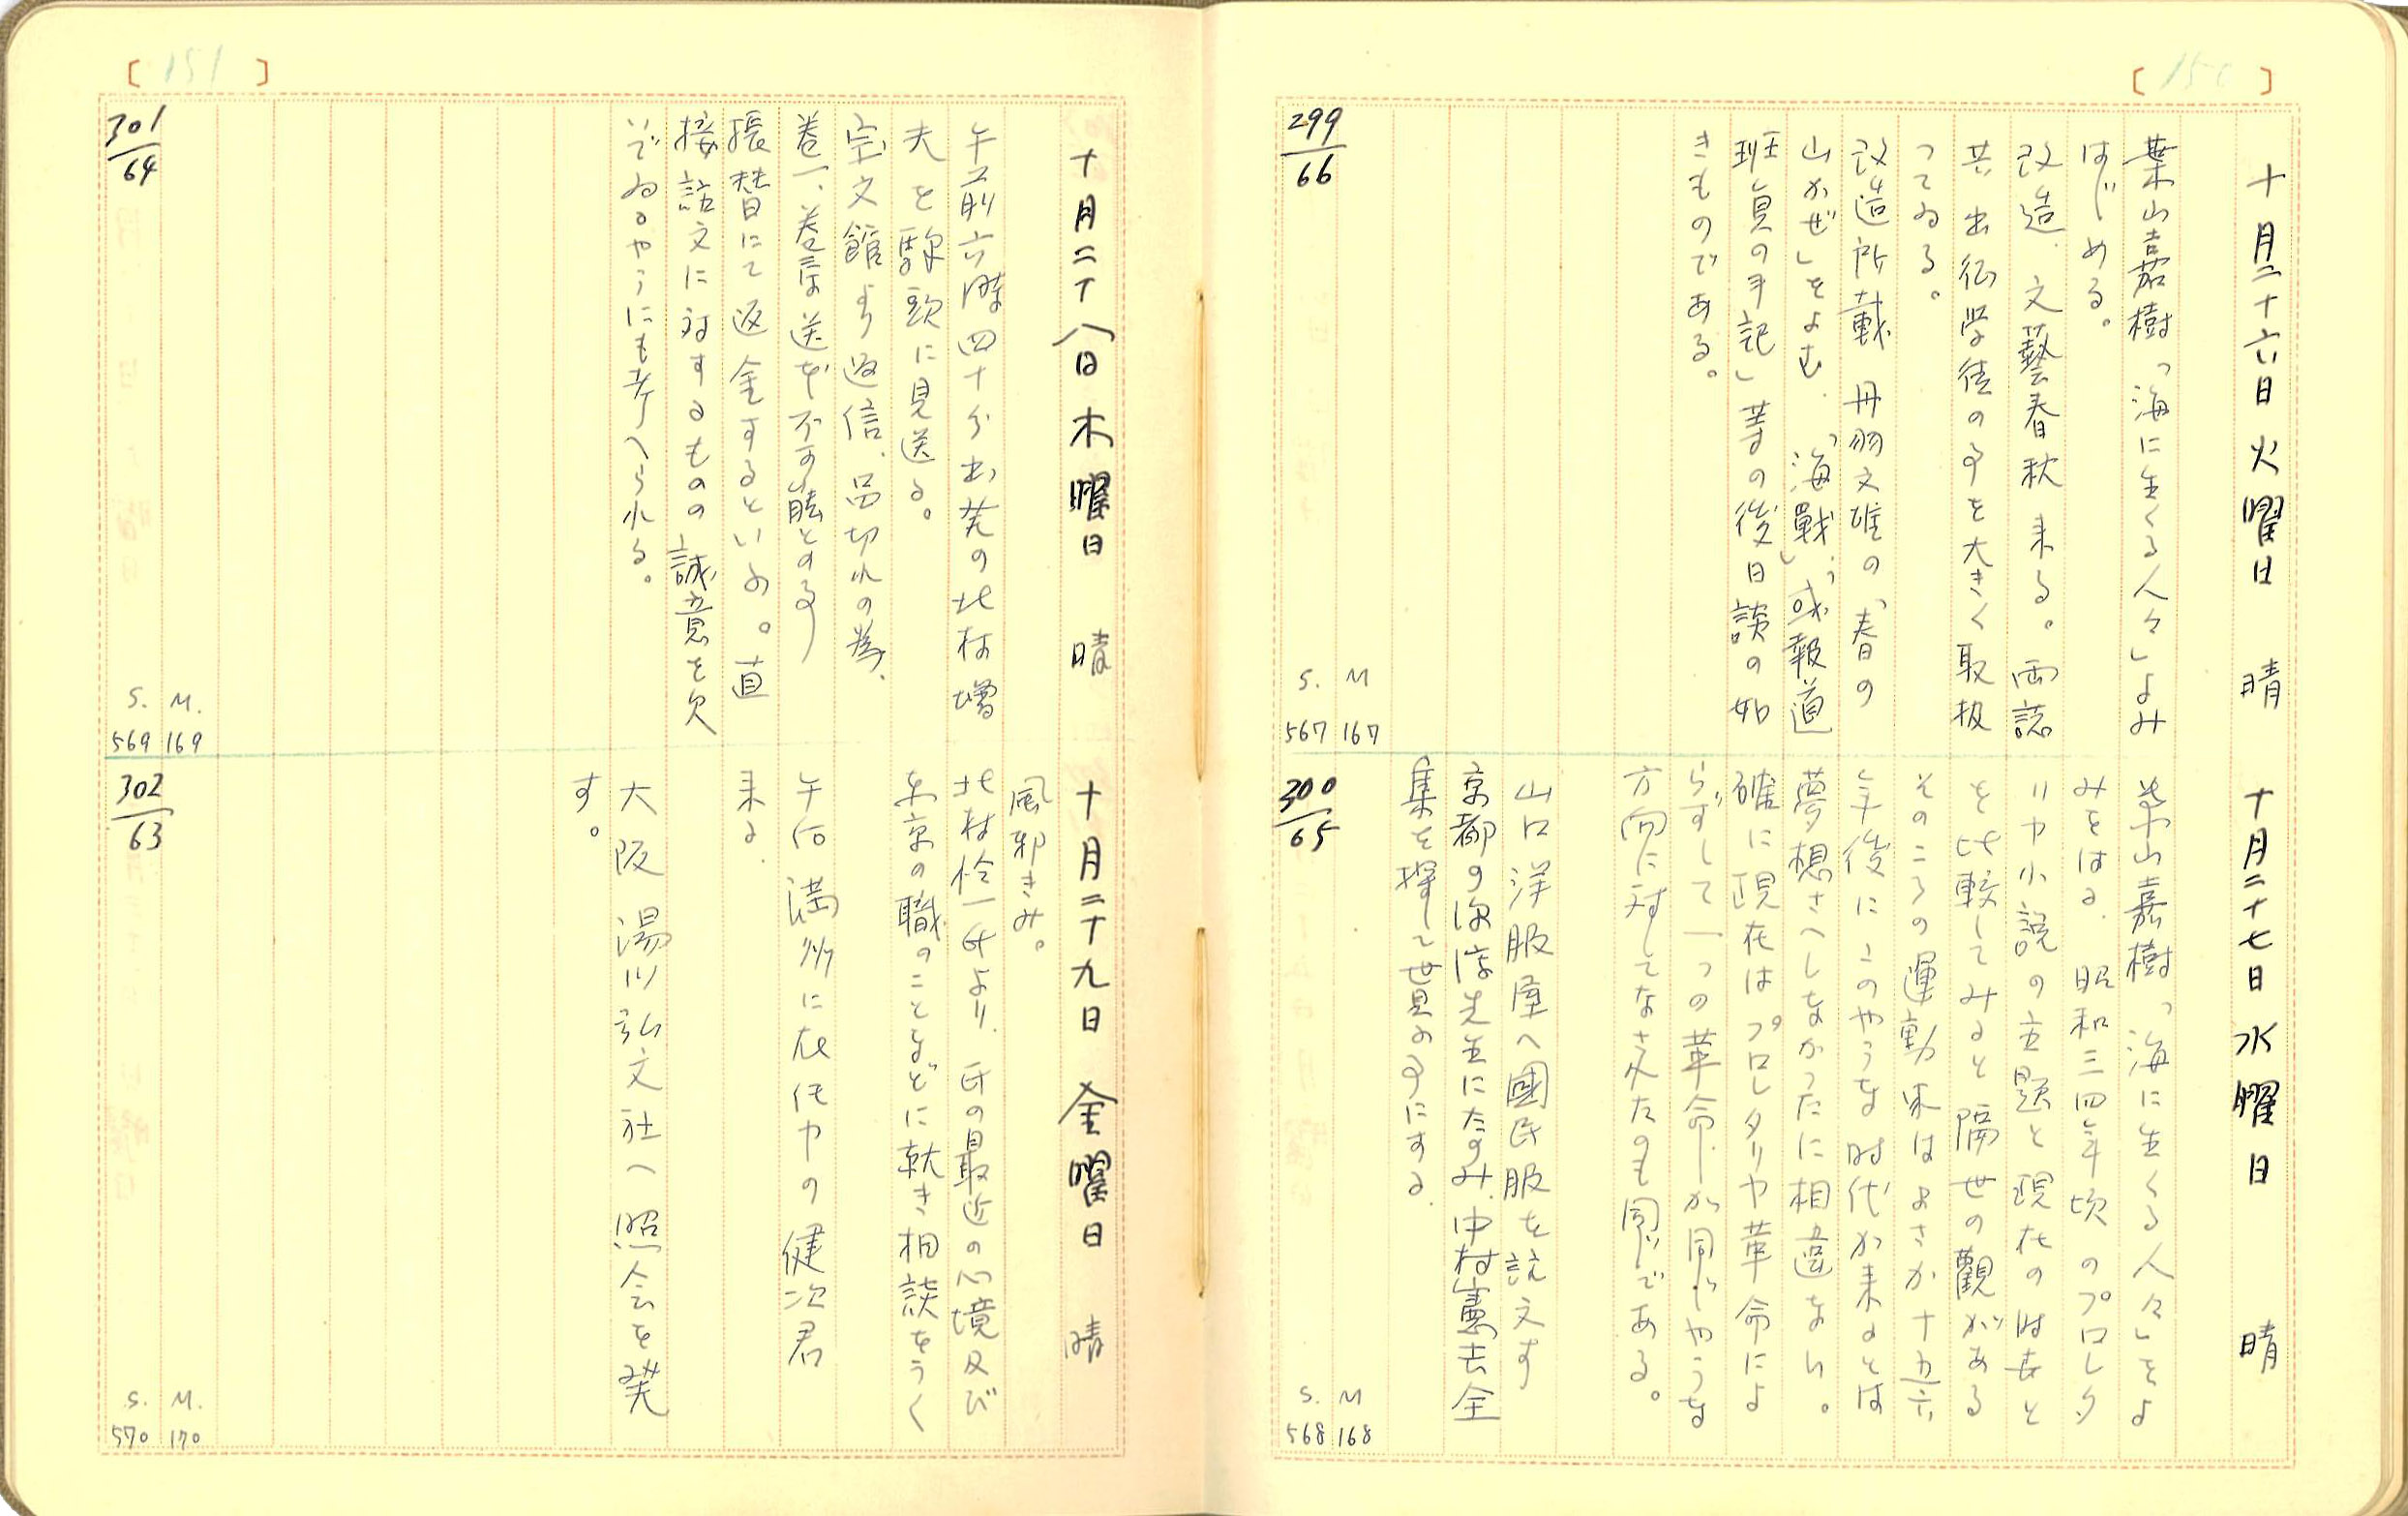 [ 150 ]
十月二十六日 火曜日 晴
葉山嘉樹「海に生くる人々」よみ
はじめる。
改造、文藝春秋 来る。両誌
共 出征学徒の事を大きく取扱
つてゐる。
改造所載 丹羽文雄の「春の
山かぜ」をよむ、「海戰」、「或報道
班員の手記」等の後日談の如
きものである。
299/66
S. M
567 167
十月二十七日 水曜日 晴
葉山嘉樹「海に生くる人々」をよ
みをはる、昭和三四年頃のプロレタ
リヤ小説の主題と現在の時世と
を比較してみると隔世の觀がある
そのころの運動家はよさか十五六
年後にこのやうな時代が来るとは
夢想さへしなかつたに相違ない。
確に現在はプロレタリヤ革命によ
らずして一つの革命が同じやうな
方向に対してなさえたのも同じである。
山口洋服屋へ國民服を註文す
京都の 先生にたのみ、中村憲吉全
集を探して世貝ふ事にする。
300/65
S. M
568 168
[ 151 ]
十月二十八日 木曜日 晴
午前六時四十分出発の北村増
夫を驛頭に見送る。
宝文館より返信、品切れの為、
巻一、巻 送本不可能との事
振替にて返金するといふ。直
接註文に対するものの誠意を欠
いでゐるやうにも考へられる。
301/64
S. M.
569 169
十月二十九日 金曜日 晴
風邪きみ。
北村伶一氏より、氏の最近の心境及び
東京の職のことなどに就き相談をうく
午后 満州に在住中の健次君
来る。
大阪 湯川弘文社へ照会を発
す。
302/63
S. M.
570 170